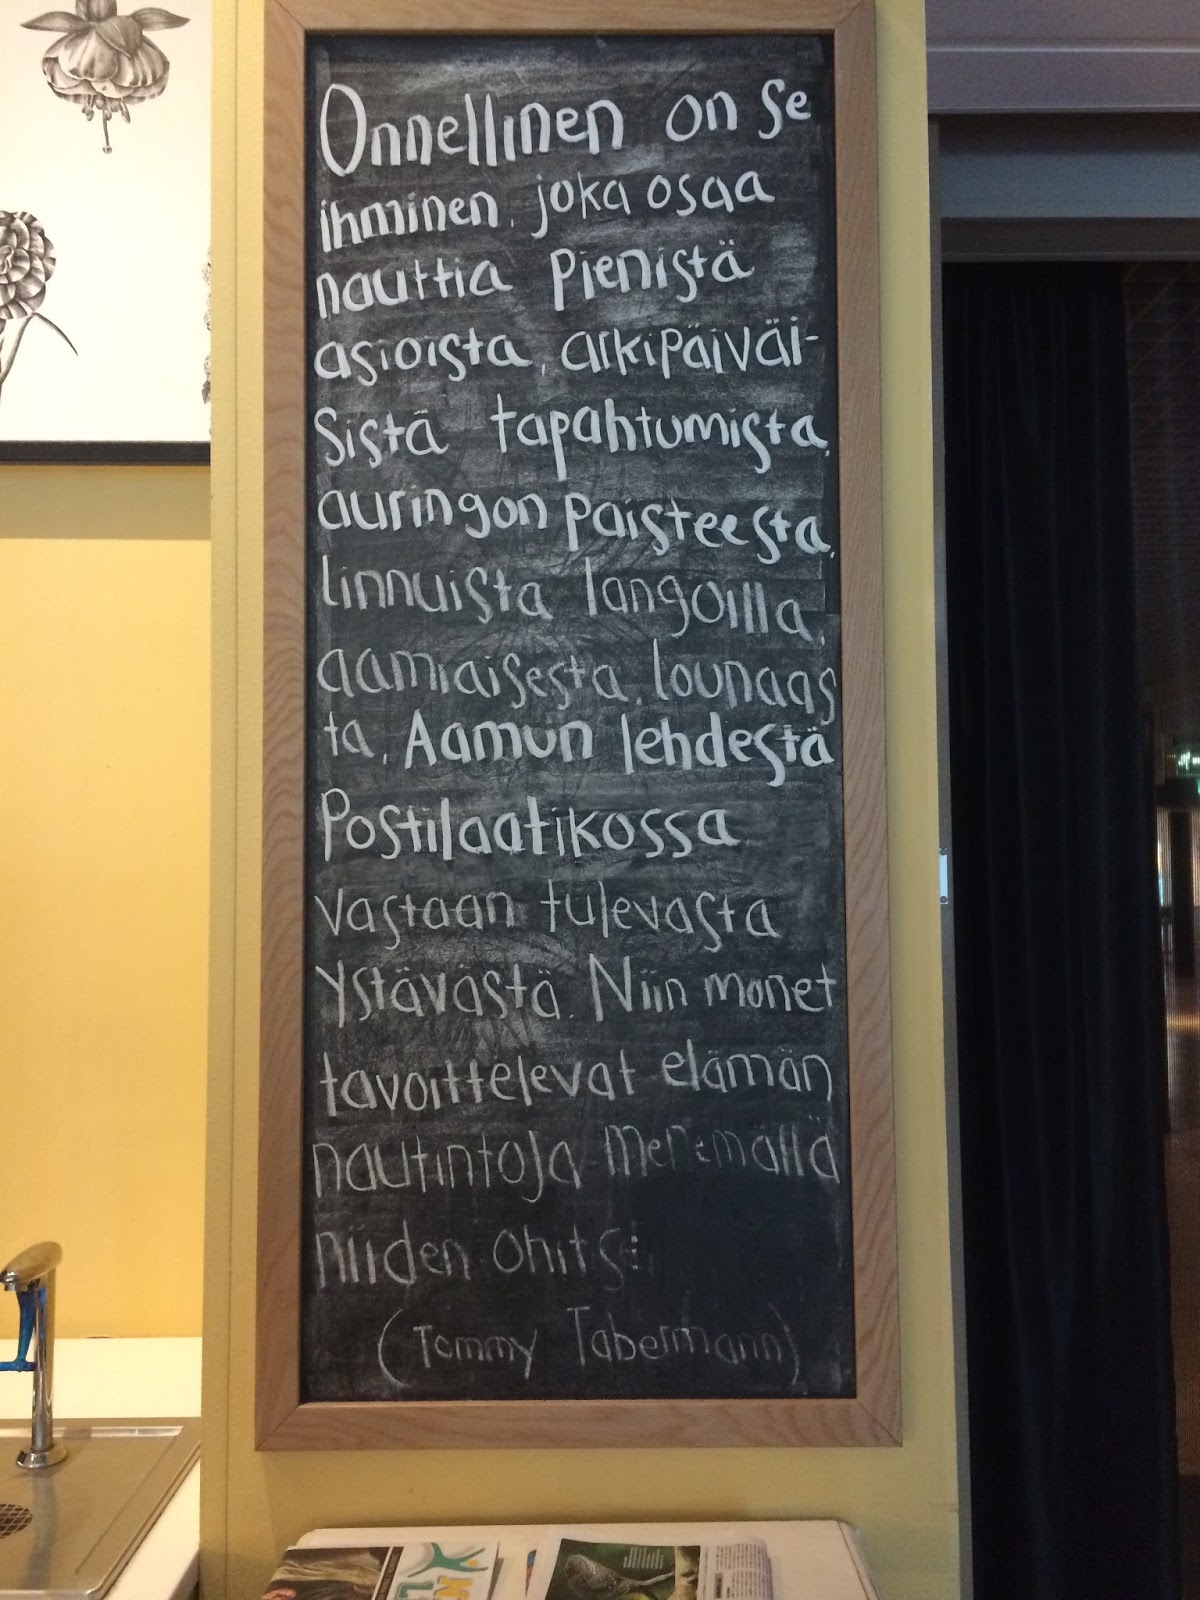 Onnellinen on se
ihminen, joka osaa
nauttia pienistä
asioista, arkipäiväi-
sistä tapahtumista,
auringon paisteesta,
linnuista langoilla,
aamiaisesta, lounaas
ta, Aamun lehdestä
Postilaatikossa
vastaan tulevasta
ystävästä. Niin monet
tavoittelevat elämän
nautintoja menemällä
niiden ohitse
(Tommy Tabermann)